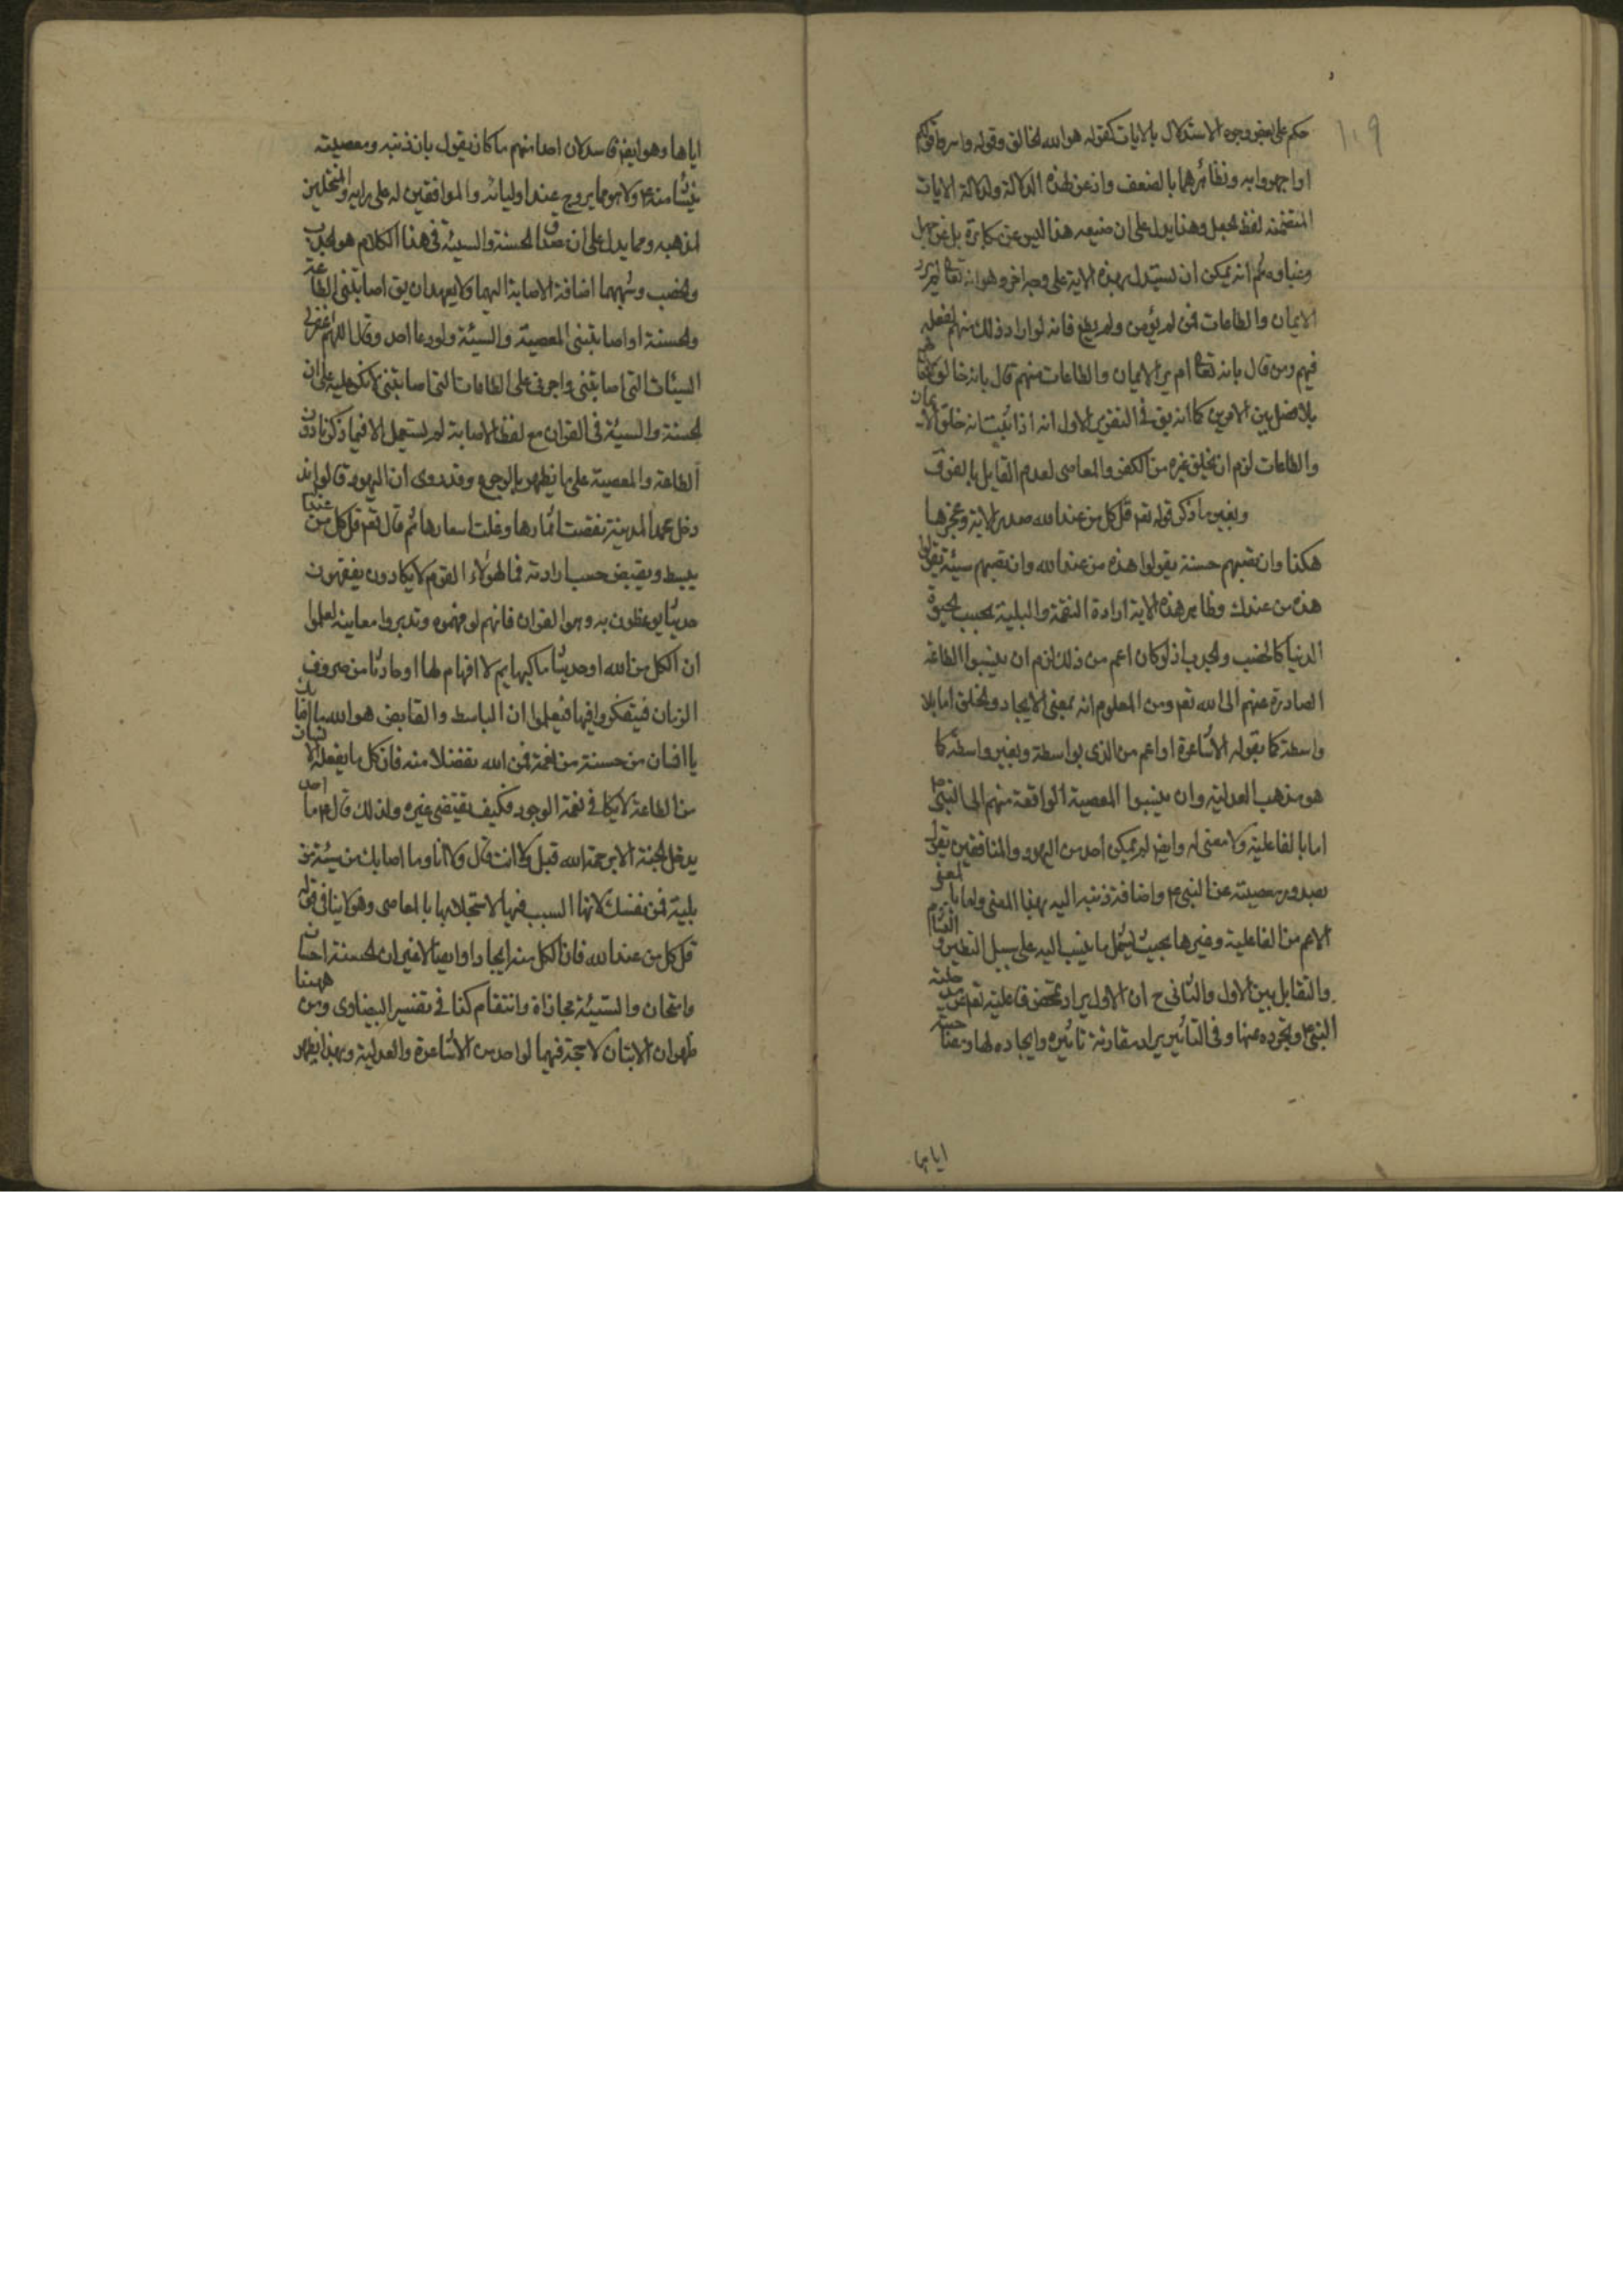 ١٠٩
حكم على بعض وجوه الاستدلال بالايات كقوله هو الله الخالق وقوله واسروا قولكم
او اجهروا به ونظائرهما بالضعف واذعن لهذه الدلالة ولدلالة الايات
المتضمنة لفظ الجعل وهذا يدل على ان صنيعه هذا ليس عن مكابرة بل عن جهل
وغباوه ثم انه يمكن ان يستدل بهذه الاية على وجه اخر وهو انه تعالى لم يرد
الايمان والطاعات ممن لم يؤمن ولم يطع فانه لو اراد ذلك منهم لفعله
فيهم ومن قال بانه تعالى لم يرد الايمان والطاعات منهم قال بانه خالق
بلا فصل بين الامرين كما انه يق في التقرير الاول انه اذا ثبت انه خلق الايمان
والطاعات لزم ان يخلق غيره من الكفر والمعاصي لعدم القايل بالفرق
وبغير ما ذكر قوله تعم قل كل من عند الله صدر الاية وعجزها
هكذا وان تصبهم حسنة يقولوا هذه من عند الله وان تصبهم سيئة يقولوا
هذه من عندك وظاهر هذه الاية ارادة النقمة والبلية بحسب الحيوة
الدنيا كالخصب والجدب اذ لو كان اعم من ذلك لزم ان ينسبوا الطاعة
الصادرة عنهم الى الله تعم ومن المعلوم انه بمعنى الايجاد والخلق اما بلا
واسطة كما يقوله الاشاعرة او اعم من الذي بواسطة وبغير واسطة كما
هو مذهب العدلية وان ينسبوا المعصية الواقعة منهم الى النبي ص
اما بالفاعلية ولا معنى له وايضا لم يمكن احد من اليهود والمنافقين يقول
بصدور معصيته عن النبي ص واضافة ذنبه اليه بهذا المعنى واما بالمعنى
الاعم من الفاعلية وغيرها بحيث يشمل ما ينسب اليه على سبيل التطير والتشأم
والتقابل بين الاول والثاني ح ان الاول يراد به محض فاعليته تعم عن مدخلية
النبي ص وتجرده عنها وفي التأثير يراد مقارنة تأثيره وايجاده لها ومصاحبته
اياها
اياها وهو ايضا فاسد لان احدا منهم ما كان يقول بان ذنبه ومعصيته
ينشأ منه ص ولا هو مما يروج عند اوليائه والموافقين له على رايه والمنتحلين
لمذهبه ومما يدل على ان مصداق الحسنة والسيئة في هذا الكلام هو الجدب
والخصب وشبههما اضافة الاصابة اليهما ولا يعهد ان يق اصابتني الطاعة
والحسنة او اصابتني المعصية والسيئة ولو دعا احد وقال اللهم اغفر لي
السيئات التي اصابتني واجرني على الطاعات التي اصابتني لانكر عليه على ان
الحسنة والسيئة في القران مع لفظ الاصابة لم يستعمل الا فيما ذكرنا دون
الطاعة والمعصية على ما يظهر بالرجوع وقد روى ان اليهود قالوا منذ
دخل محمد المدينة نقصت اثمارها وغلت اسعارها ثم قال تعم قل كل من عند الله
يبسط ويقبض حسب ارادته فما لهؤلاء القوم لا يكادون يفقهون
حديثا يوعظون به وهو القران فانهم لو فهموه وتدبروا معانيه لعلموا
ان الكل من الله او حديثا ما كبهايم لا افهام لها او حادثا من صروف
الزمان فيتفكروا فيها فيعلموا ان الباسط والقابض هو الله ما اصابك
يا انسان من حسنة من نعمة فمن الله تفضلا منه فان كل ما يفعله الانسان
من الطاعة لا يكافي نعمة الوجود فكيف يقتضى غيره ولذلك قال ع ما احد
يدخل الجنة الا برحمة الله قيل ولا انت قال ولا انا وما اصابك من سيئة من
بلية فمن نفسك لانها السبب فيها لاستجلابها بالمعاصي وهو لا ينافي قوله
قل كل من عند الله فان الكل منه ايجادا وايصالا غير ان الحسنة احسان
وامتحان والسيئة مجازاة وانتقام كذا في تفسير البيضاوي ومن ههنا
ظهر ان الايتان لا حجة فيهما لواحد من الاشاعرة والعدلية وبهذا يظهر